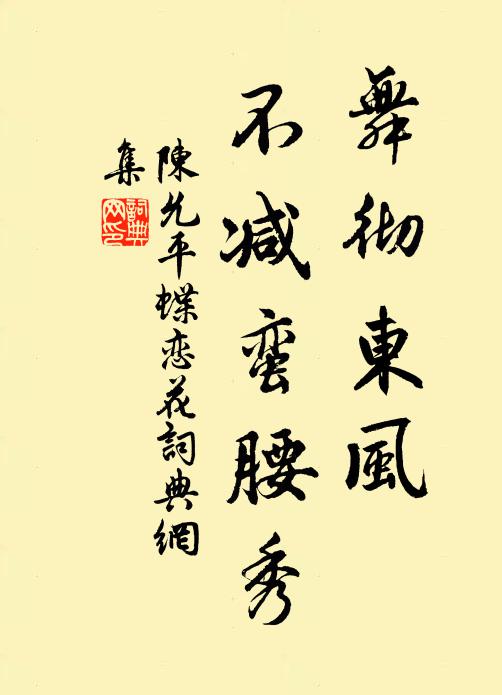 舞彻東風
不减蛮腰秀
陳允平蝶恋花詞典網
集
詞典網印